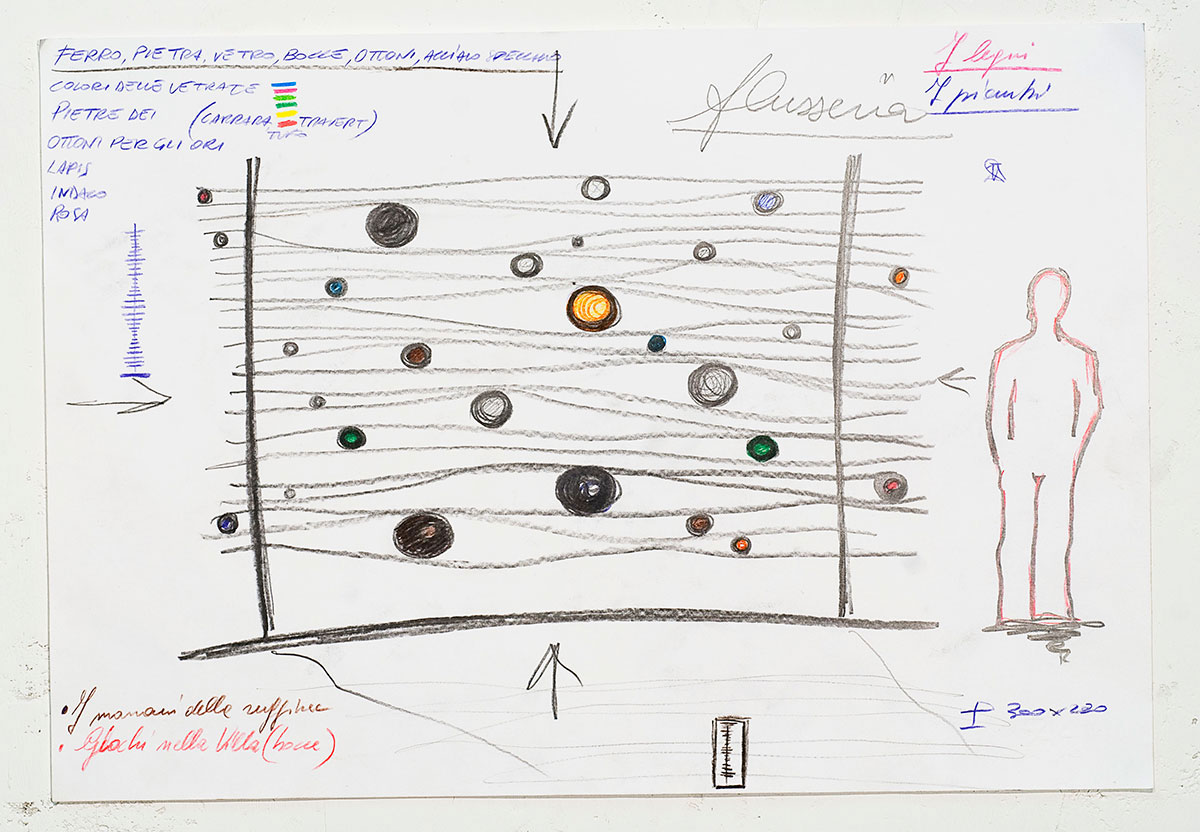 FERRO, PIETRA, VETRO, BOCCE, OTTONI, ACCIAIO SPECCHIO
COLORI DELLE VETRATE
PIETRE DEI (CARRARA TRAVERT)
TUFO
OTTONI PER GLI ORI
LAPIS
INDACO
ROSA
I legni
I pianti
± 300 x 220
• I marroni della ruggine
• Giochi nella Villa (bocce)